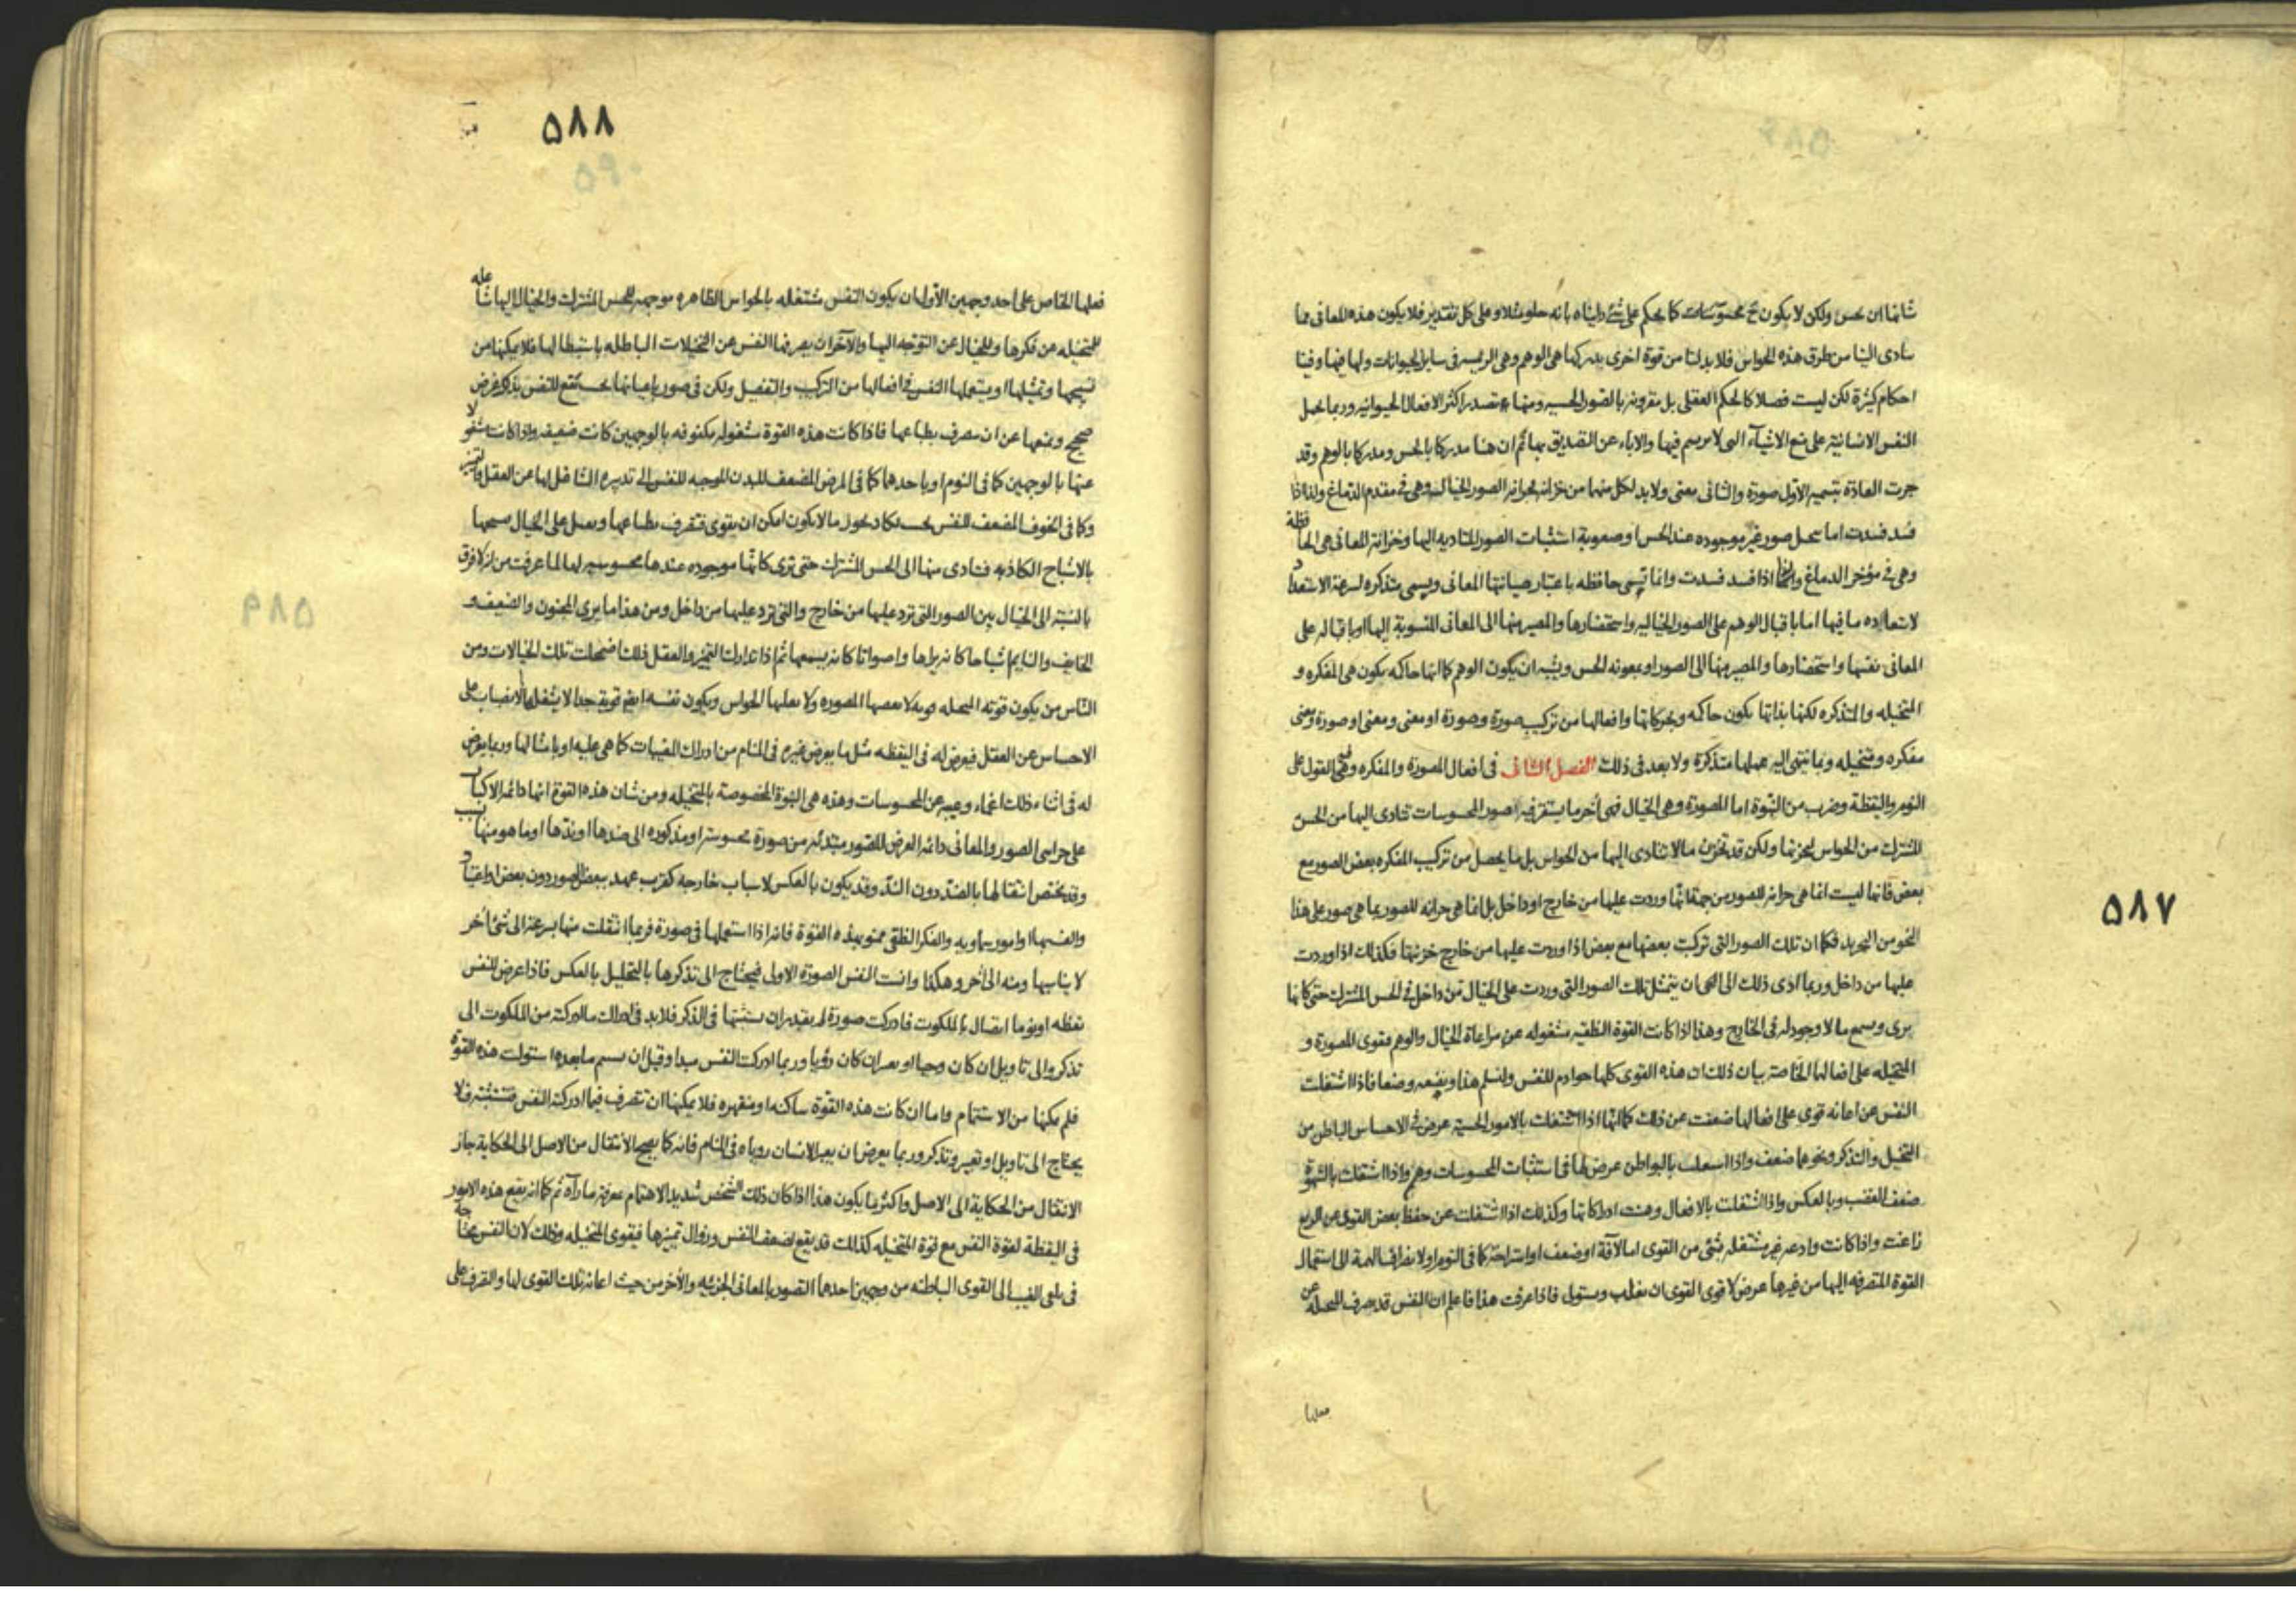 ۵۸۷
شانها ان تحس ولكن لا يكون ح محسوسات كما يحكم على شئ رايناه بانه حلو مثلا وعلى كل تقدير فلا يكون هذه المعانى مما
تتادى الينا من طرق هذه الحواس فلا بد لنا من قوة اخرى يدركها هى الوهم وهى الرئيسه فى ساير الحيوانات ولها فيها وفينا
احكام كثيرة لكن ليست فصلا كالحكم العقلى بل مقرونه بالصور الحسيه ومنها يصدر اكثر الافعال الحيوانيه وربما يحمل
النفس الانسانية على منع الاشياء التى لا يرتسم فيها والاباء عن التصديق بها ثم ان هنا مدركا بالحس ومدركا بالوهم وقد
جرت العادة بتسميه الاول صورة والثانى معنى ولا بد لكل منهما من خزانه فخزانه الصور الخيال وهى فى مقدم الدماغ ولذا اذا
فسد فسدت اما بتخيل صور غير موجوده عند الحس او صعوبة استثبات الصور المتاديه اليها وخزانه المعانى هى الحافظه
وهى فى مؤخر الدماغ ولذا اذا فسد فسدت وانما تسمى حافظه باعتبار صيانتها المعانى ويسمى متذكره لسرعة الاستعداد
لاستعاده ما فيها اما باقبال الوهم على الصور الخياليه واستحضارها والمصير منها الى المعانى المنسوبة اليها او باقباله على
المعانى نفسها واستحضارها والمصير منها الى الصور او بمعونه الحس ويشبه ان يكون الوهم كما انها حاكمه يكون هى المفكره و
المتخيله والمتذكره لكنها بذاتها يكون حاكمه وبحركاتها وافعالها من تركيب صورة وصورة او معنى ومعنى او صورة ومعنى
مفكره ومتخيله وبما ينتهى اليه عملها متذكرة ولا بعد فى ذلك الفصل الثانى فى افعال المصورة والمفكره وفيه القول على
النوم واليقظة وضرب من النبوة اما المصورة وهى الخيال فهى آخر ما يستقر فيه صور المحسوسات تتادى اليها من الحس
المشترك من الحواس لخزنها ولكن قد تخزن ما لا تتادى اليها من الحواس بل ما يحصل من تركيب المفكره بعض الصور مع
بعض فانها ليست انما هى خزانه للصور من جهة انها وردت عليها من خارج او داخل بل انما هى خزانه للصور بما هى صور على هذا
النحو من التجريد فكما ان تلك الصور التى تركبت بعضها مع بعض اذا وردت عليها من خارج خزنتها فكذلك اذا وردت
عليها من داخل وربما ادى ذلك الى ان يتمثل تلك الصور التى وردت على الخيال من داخل فى الحس المشترك حتى كانها
يرى ويسمع ما لا وجود له فى الخارج وهذا اذا كانت القوة النطقيه مشغوله عن مراعاة الخيال والوهم فقوى المصورة و
المتخيله على افعالها الخاصة بيان ذلك ان هذه القوى كلها خوادم للنفس ولنسلم هذا وبنيعه وضعا فاذا اشتغلت
النفس عن اعانه قوى على افعالها ضعفت عن ذلك كما انها اذا اشتغلت بالامور الحسية عرض فى الاحساس الباطن من
التخيل والتذكر ونحوهما ضعف واذا اشتغلت بالبواطن عرض لها فى استثبات المحسوسات وهم واذا اشتغلت بالشهوة
ضعف الغضب وبالعكس واذا اشتغلت بالافعال وهنت ادراكاتها وكذلك اذا اشتغلت عن حفظ بعض القوى عن الزيغ
زاغت واذا كانت وادعه غير مشتغله بشئ من القوى اما لآفة او ضعف او استراحة كما فى النوم او لانصراف الهمة الى استعمال
القوة المتصرفه اليها من غيرها عرض لاقوى القوى ان يغلب ويستولى فاذا عرفت هذا فاعلم ان النفس قد يصرف المتخيله عن
فعلها
۵۸۸
فعلها الخاص على احد وجهين الاول ان يكون النفس مشتغله بالحواس الظاهره موجهه للحس المشترك والخيال اليها شاغله
للمتخيله عن فكرها وللخيال عن التوجه اليها والآخر ان يصرفها النفس عن التخيلات الباطله باستبطالها فلا يمكنها من
تسبيحها وتمثيلها او يستعملها النفس فى افعالها من التركيب والتفصيل ولكن فى صور باعيانها بحسب يقع للنفس بذلك غرض
صحيح ويمنعها عن ان يتصرف بطباعها فاذا كانت هذه القوة مشغوله مكنوفه بالوجهين كانت ضعيفه واذا كانت مشغولا
عنها بالوجهين كما فى النوم او باحدهما كما فى المرض المضعف للبدن الموجه للنفس الى تدبيره الشاغل لها عن العقل والتمييز
وكما فى الخوف المضعف للنفس بحيث يكاد يجوز ما لا يكون امكن ان يقوى فتتصرف بطباعها ويعمل على الخيال بتسبيحها
بالاشباح الكاذبه فتتادى منها الى الحس المشترك حتى ترى كانها موجوده عندها محسوسه لها لما عرفت من ان لا فرق
بالنسبة الى الخيال بين الصور التى ترد عليها من خارج والتى ترد عليها من داخل ومن هذا ما يرى المجنون والضعيف و
الخايف والنايم اشباحا كانه يراها واصواتا كانه يسمعها ثم اذا تدارك التمييز والعقل ذلك اضمحلت تلك الخيالات ومن
الناس من يكون قوته المتخيله قويه لا يعصيها المصوره ولا يغلبها الحواس ويكون نفسه ايضا قوية جدا لا يشغلها الانصباب على
الاحساس عن العقل فيعرض له فى اليقظه مثل ما يعرض لغيره فى المنام من ادراك المغيبات كما هى عليه او بامثالها وربما يعرض
له فى اثناء ذلك اغماء وغيبه عن المحسوسات وهذه هى النبوة المخصوصة بالمتخيله ومن شان هذه القوة انها دائمه الاكباب
على خزانتى الصور والمعانى دائمه العرض للصور مبتدئه من صورة محسوسة او مذكوره الى ضدها او ندها او ما هو منها بسبب
وقد يختص انتقالها بالضد دون الند وقد يكون بالعكس لاسباب خارجه كقرب عهد ببعض الصور دون بعض واعتياد
والفتها او امور سماويه والفكر النطقى ممنو بهذه القوة فانه اذا استعملها فى صورة فربما انتقلت منها بسرعة الى شئ آخر
لا يناسبها ومنه الى آخر وهكذا وانست النفس الصورة الاولى فيحتاج الى تذكرها بالتحليل بالعكس فاذا عرض للنفس
يقظه او نوما اتصال بالملكوت فادركت صورة لم يقدر ان يستثبتها فى الذكر فلا بد فى ادراك ما ادركته من الملكوت الى
تذكر والى تاويل ان كان وحيا او تعبير ان كان رؤيا وربما ادركت النفس مبدا وقبل ان يستتم ما بعده استولت هذه القوة
فلم يمكنها من الاستتمام واما ان كانت هذه القوة ساكنه او منقهره فلا يمكنها ان تتصرف فيما ادركته النفس فتستثبته فلا
يحتاج الى تاويل او تعبير وتذكر وربما يعرض ان يعبر الانسان رؤياه فى المنام فانه كما يصح الانتقال من الاصل الى الحكاية جاز
الانتقال من الحكاية الى الاصل واكثر ما يكون هذا اذا كان ذلك الشخص شديد الاهتمام بمعرفة ما رآه ثم كما انه يقع هذه الامور
فى اليقظة لقوة النفس مع قوة المتخيله كذلك قد يقع لضعف النفس وزوال تمييزها فيقوى المتخيله وذلك لان النفس محتاجة
فى تلقى الغيب الى القوى الباطنه من وجهين احدهما التصور بالمعانى الجزئيه والآخر من حيث اعانة تلك القوى لها والتصرف على